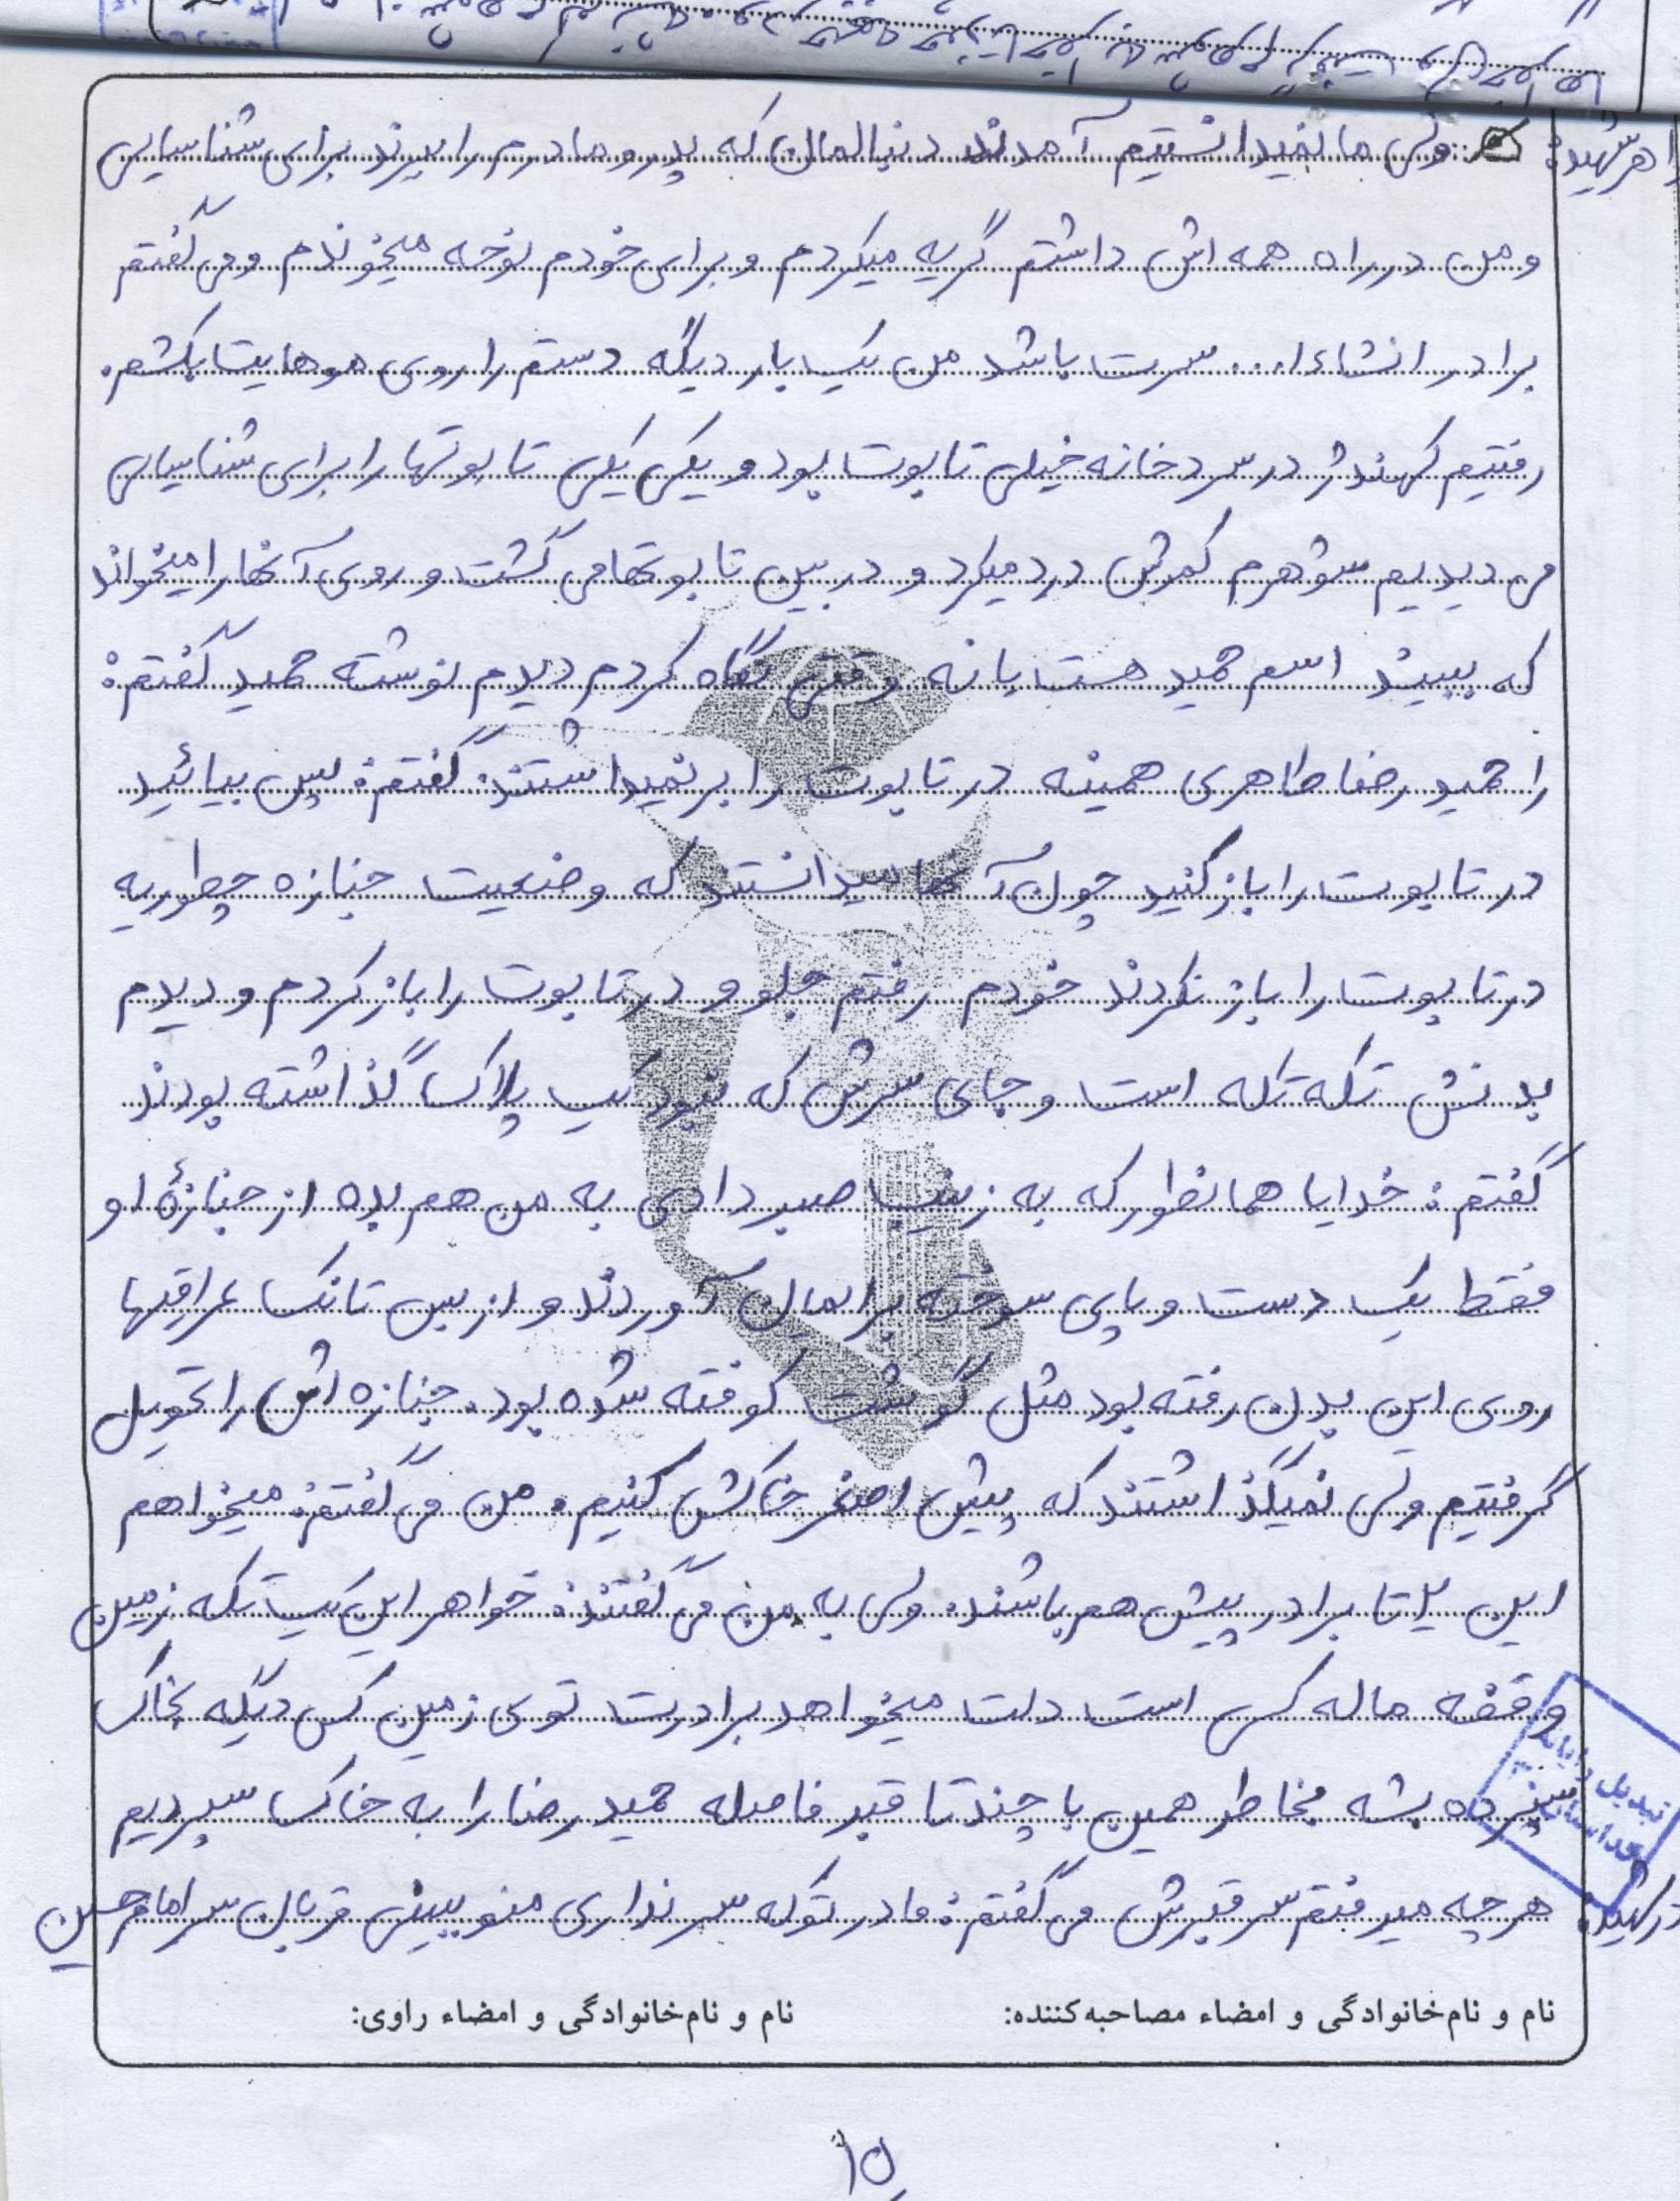 خواهر شهید: ولی ما نمیدانستیم آمدند دنبالمان که پدر و مادرم را ببرند برای شناسایی
و من در راه همه اش داشتم گریه میکردم و برای خودم نوحه میخوندم و می گفتم
برادر انشاءا... سرت باشد من یک بار دیگه دستم را روی موهایت بکشم.
رفتیم کهندژ در سردخانه خیلی تابوت بود و یکی یکی تابوتها را برای شناسایی
می دیدیم شوهرم کمرش درد میکرد و در بین تابوتها می گشت و روی آنها را میخواند
که ببیند اسم حمید هست یا نه وقتی نگاه کردم دیدم نوشته حمید گفتم:
را حمید رضا طاهری همینه در تابوت را برنمیداشتند. گفتم: پس بیائید
در تابوت را باز کنید چون آنها میدانستند که وضعیت جنازه چطوریه
در تابوت را باز نکردند خودم رفتم جلو و در تابوت را باز کردم و دیدم
بدنش تکه تکه است و جای سرش که نبود یک پلاک گذاشته بودند
گفتم: خدایا همانطور که به زینب صبر دادی به من هم بده از جنازهٔ او
فقط یک دست و پای سوخته برایمان آوردند و از بس تانک عراقیها
روی این بدن رفته بود مثل گوشت کوفته شده بود. جنازه اش را تحویل
گرفتیم ولی نمیگذاشتند که پیش اصغر خاکش کنیم. من می گفتم: میخواهم
این ۲ تا برادر پیش هم باشند. ولی به من می گفتند: خواهر این یک تکه زمین
وقفه ماله کسی است دلت میخواهد برادرت توی زمین کس دیگه بخاک
سپرده بشه بخاطر همین با چند تا قبر فاصله حمید رضا را به خاک سپردیم
مادر شهید: هر چه میرفتم سر قبرش می گفتم: مادر تو که سر نداری منو ببینی قربان سر امام حسین
نام و نام‌خانوادگی و امضاء مصاحبه‌کننده: نام و نام‌خانوادگی و امضاء راوی:
۱۵